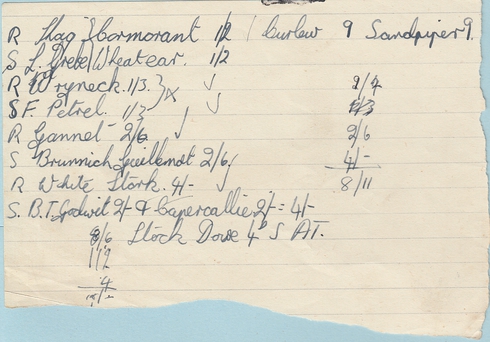 R Shag & Cormorant 1/2 Curlew 9 Sandpiper 9.
S L. Grebe / Wheatear. 1/2
R Wryneck. 1/3.
S F. Petrel. 1/3
R Gannet 2/6
S Brunnich Guillemot 2/6
R White Stork. 4/-
S. B.T. Godwit 2/- & Capercaillie 2/- = 4/-
Stock Dove 4d S AT.
8/6
1/2
4
2/6
4/-
8/11